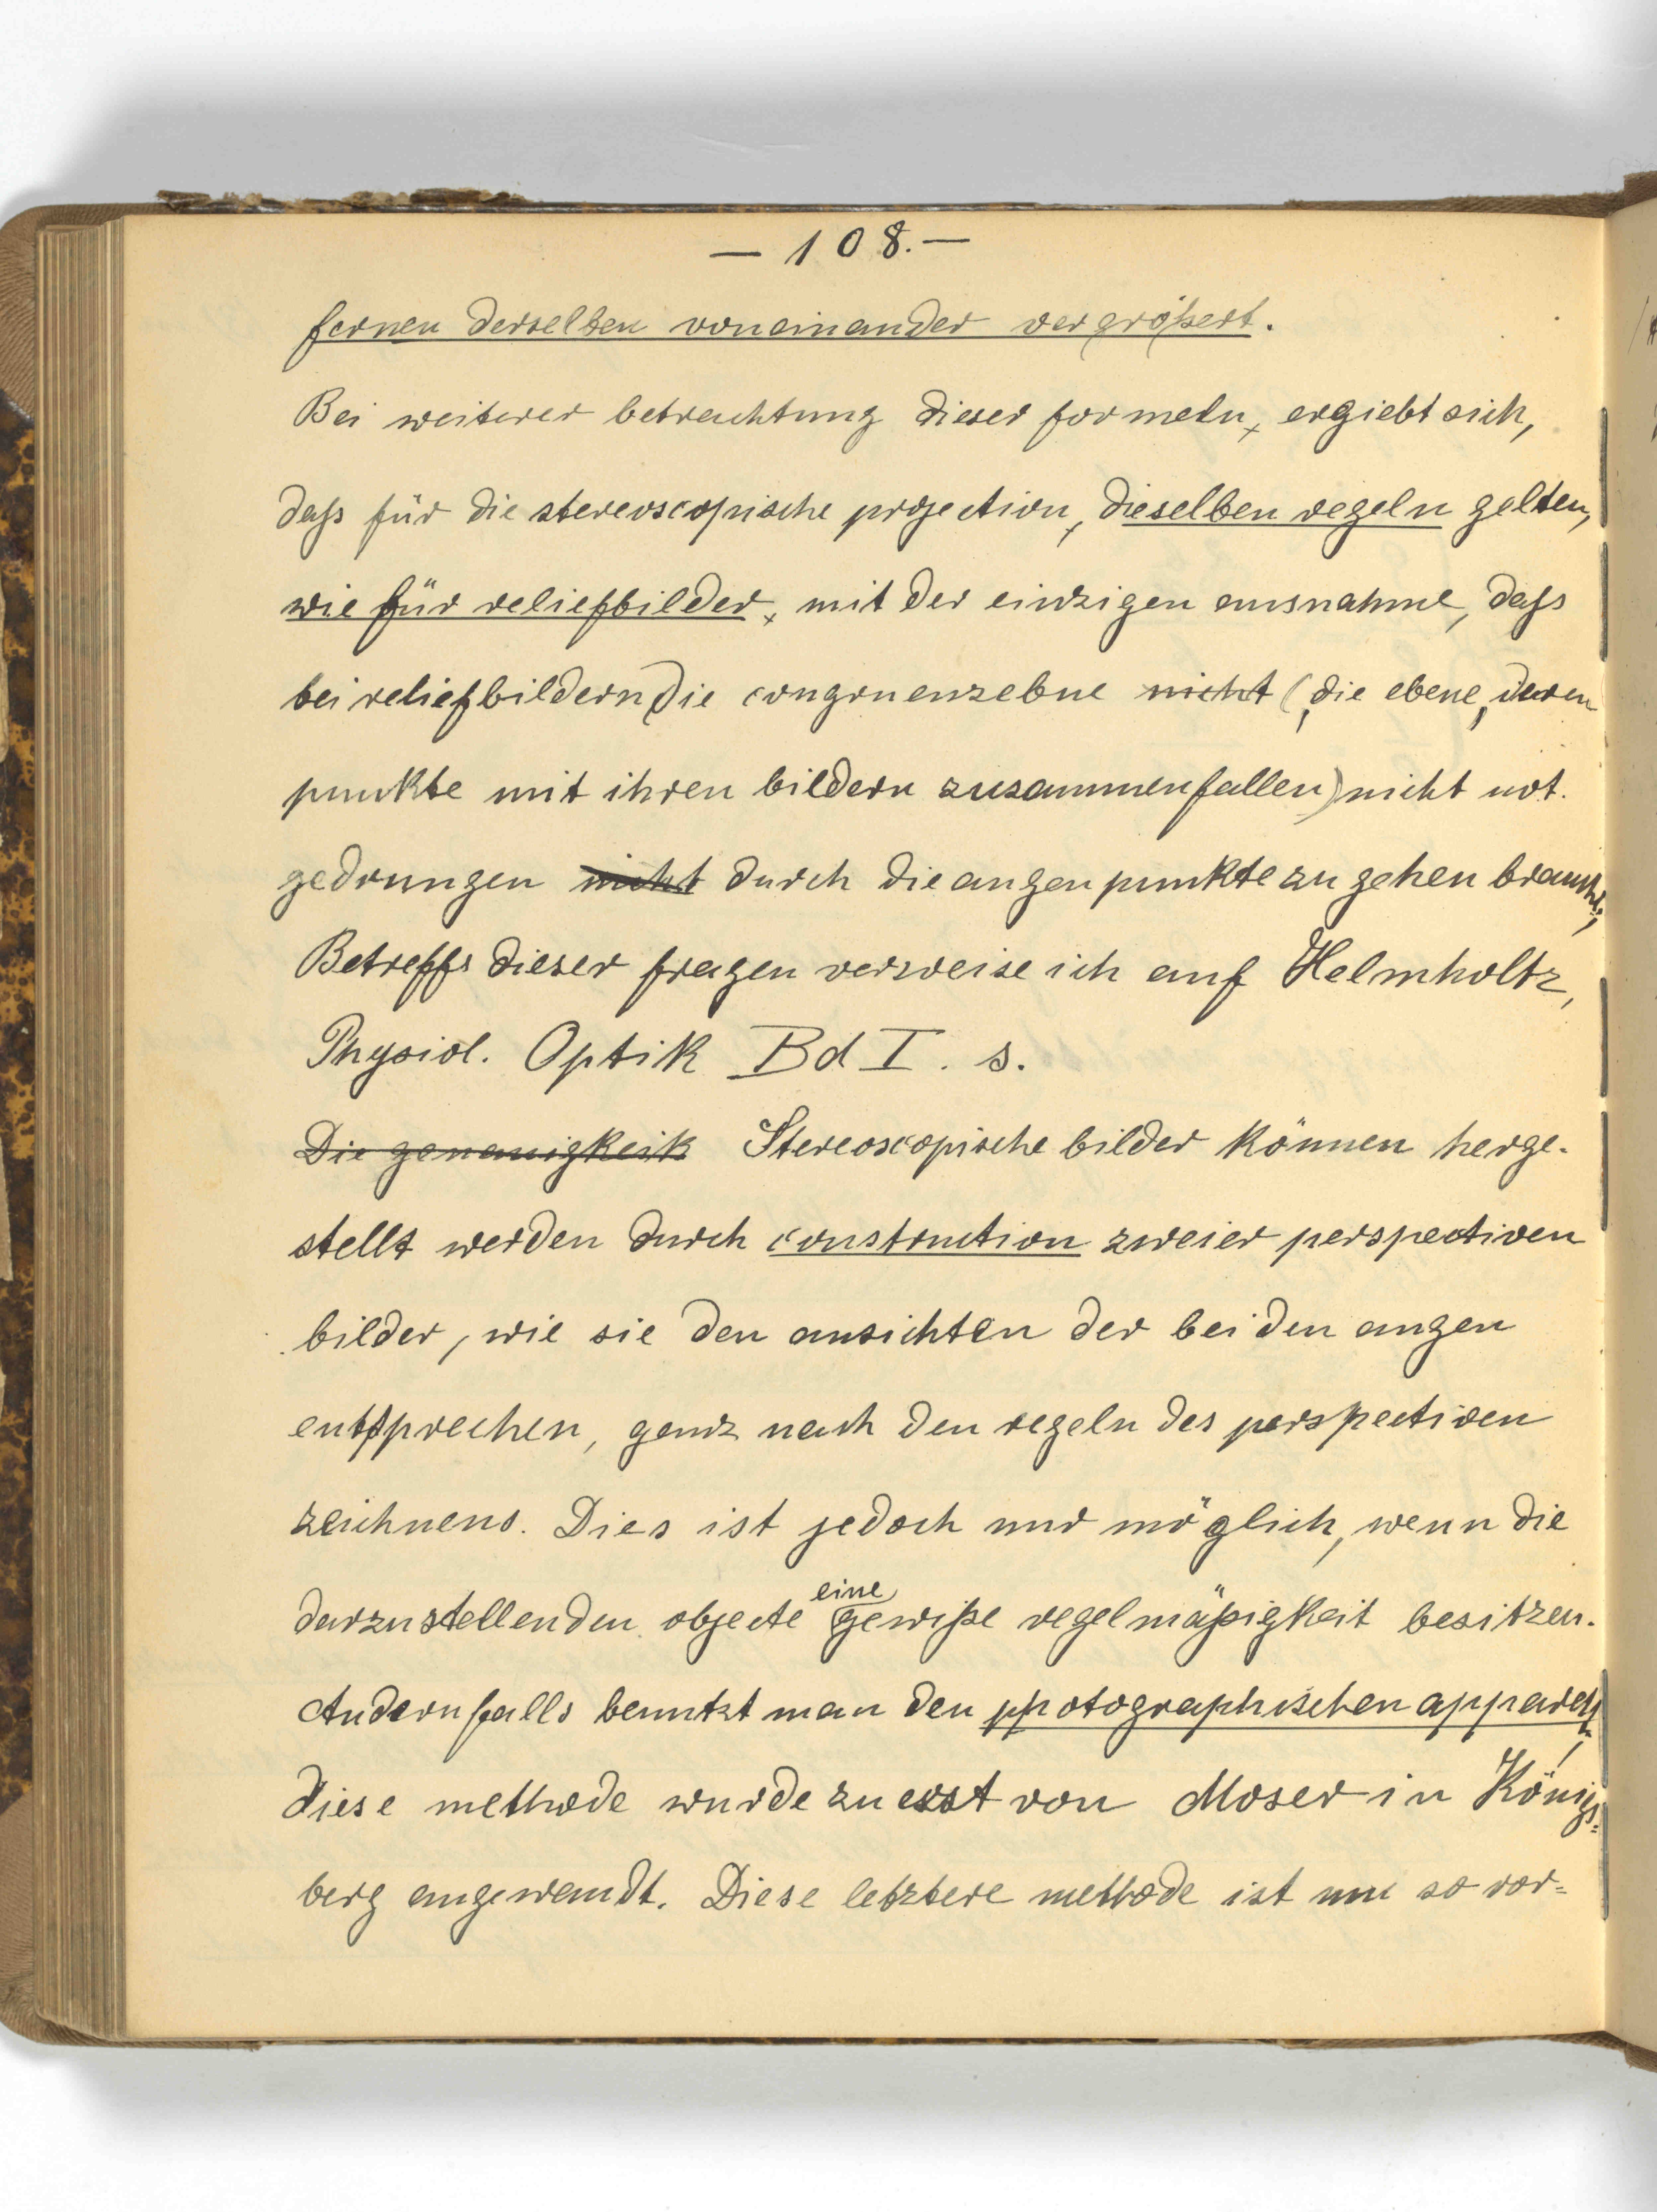 — 108. —
fernen derselben voneinander vergrößert.
Bei weiterer betrachtung dieser formeln, ergiebt sich,
daß für die stereoscopische projection, dieselben regeln gelten,
wie für reliefbilder, mit der einzigen ausnahme, daß
bei reliefbildern die congruenzebne nicht (die ebene, deren
punkte mit ihren bildern zusammenfallen) nicht not-
gedrungen nicht durch die augenpunkte zu gehen braucht,
Betreffs dieser fragen verweise ich auf Helmholtz,
Physiol. Optik Bd I. s.
Die genauigkeik Stereoscopische bilder können herge-
stellt werden durch construction zweier perspectiven
bilder, wie sie den ansichten der beiden augen
entsprechen, ganz nach den regeln des perspectiven
zeichnens. Dies ist jedoch nur möglich, wenn die
darzustellenden objecte eine gewiße regelmäßigkeit besitzen.
Andernfalls benutzt man den photographischen apparat,
diese methode wurde zuerst von Moser in Königs=
berg angewandt. Diese letztere methode ist um so vor=